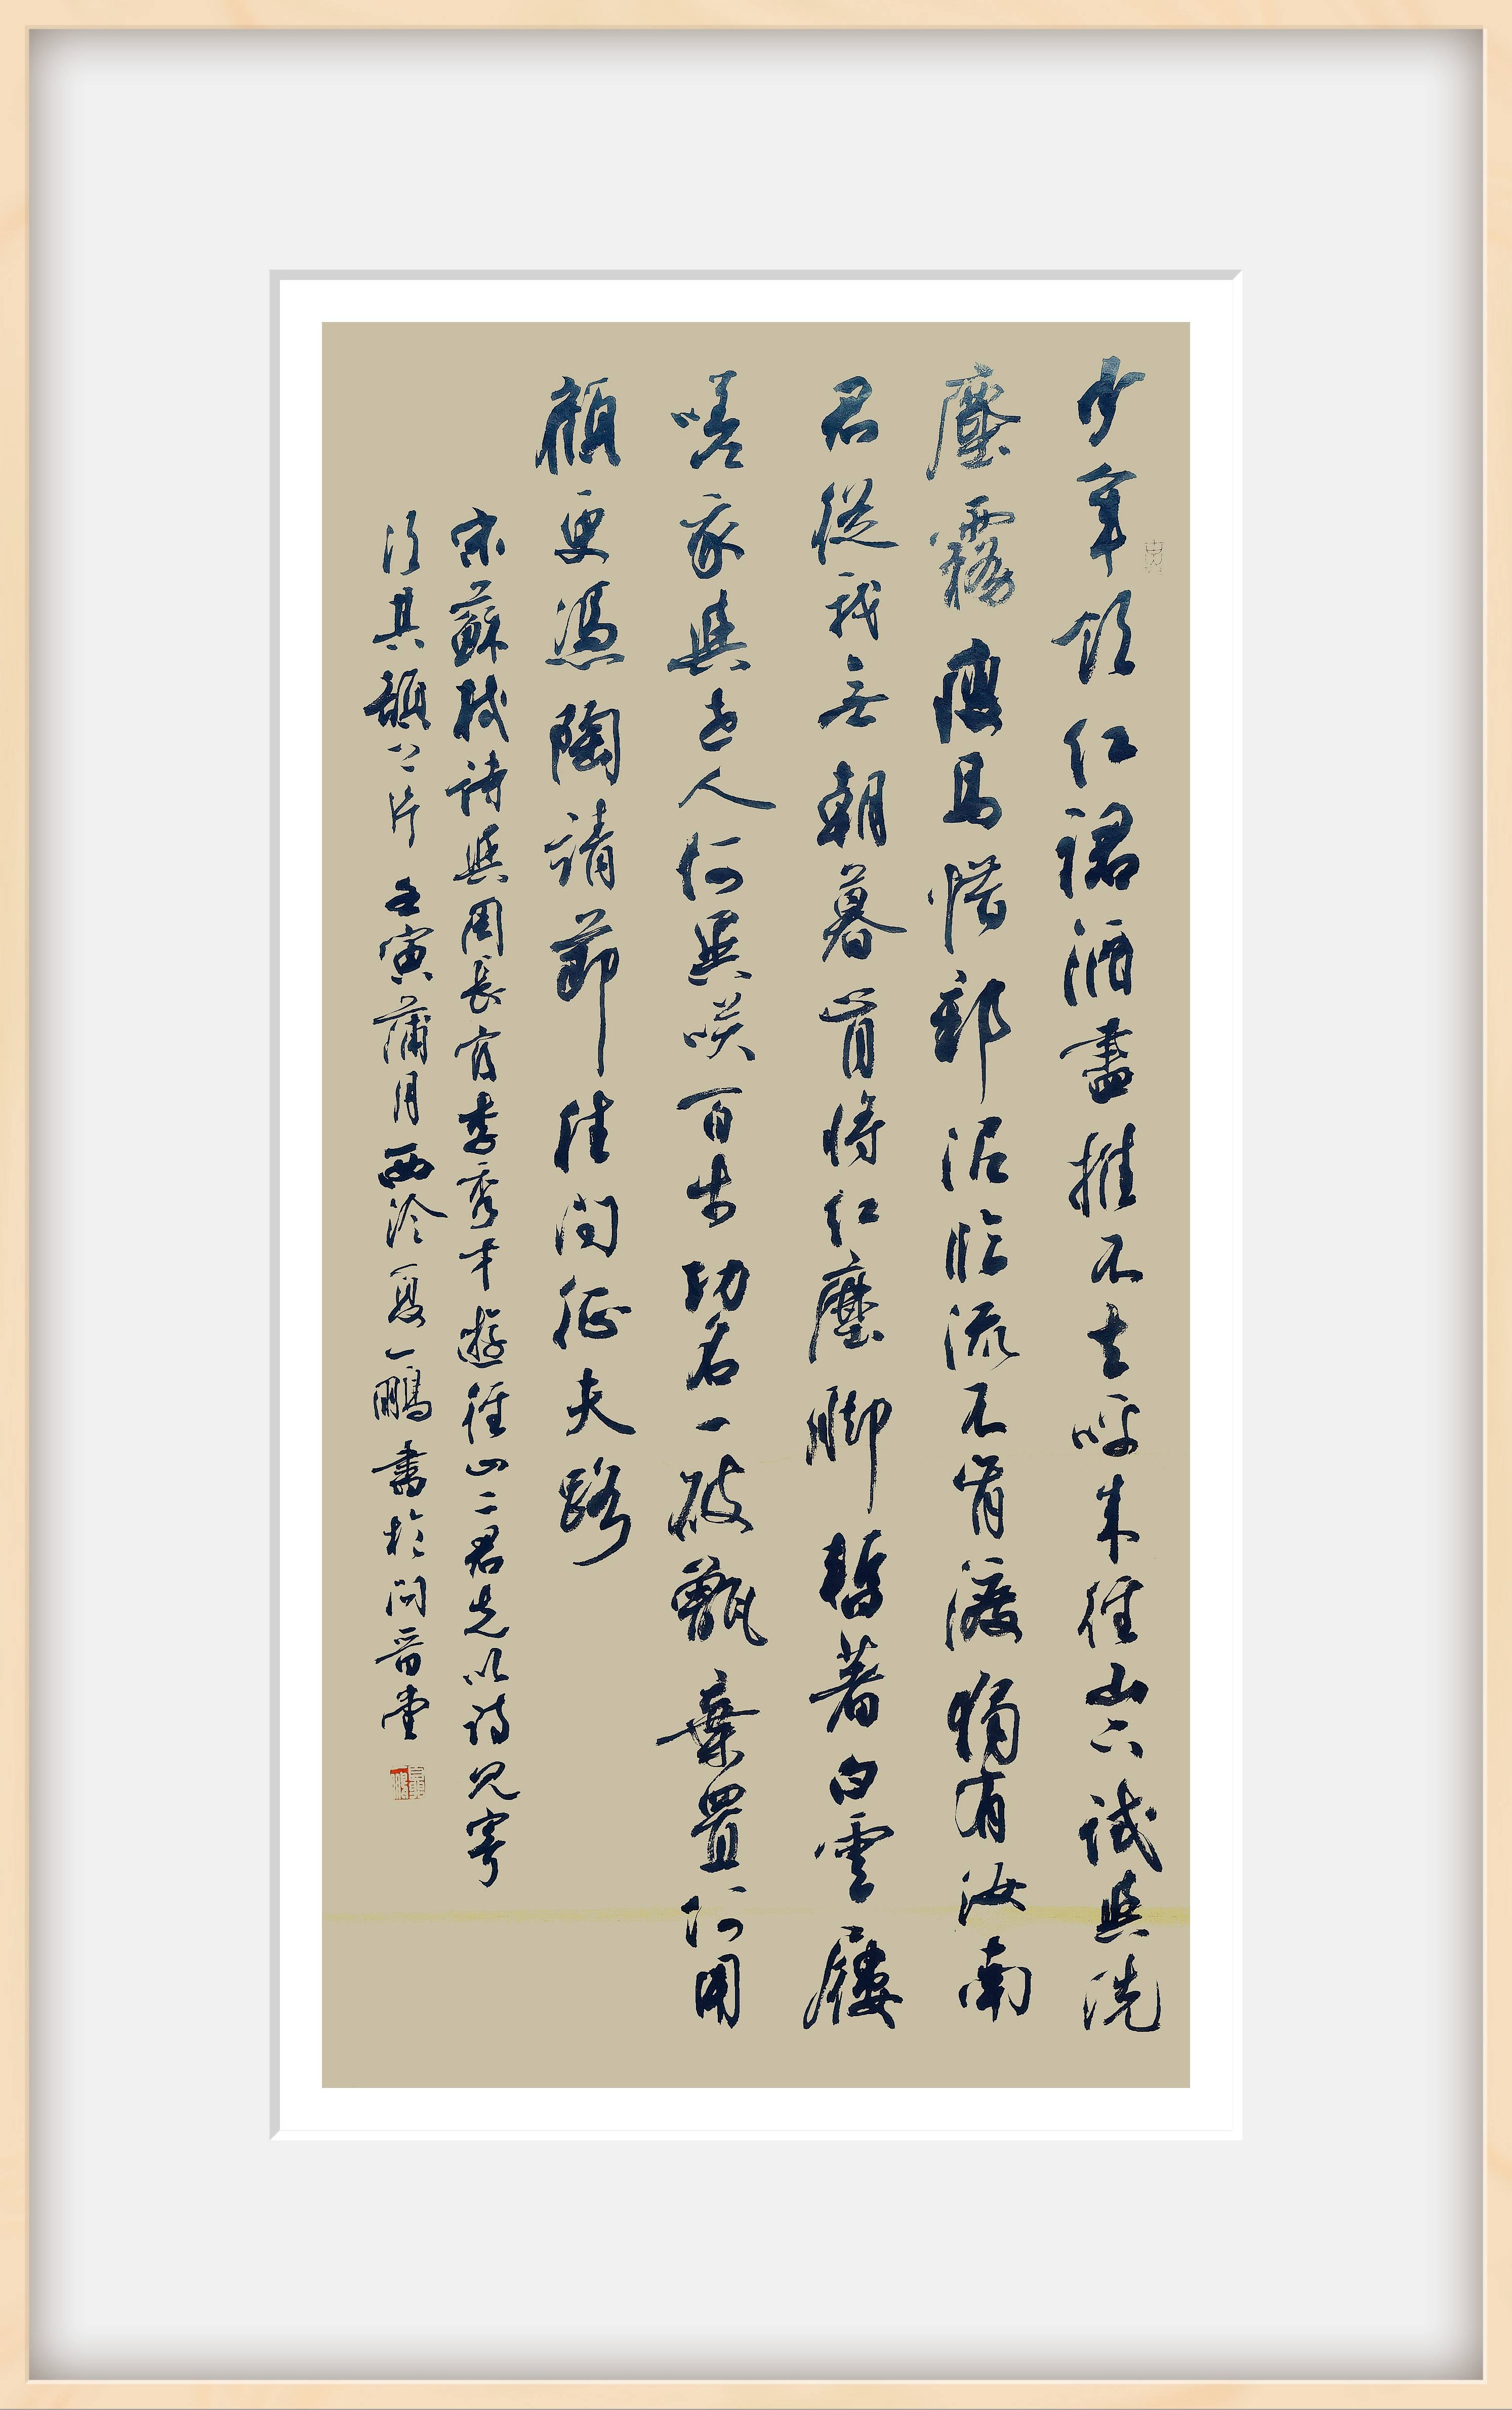 少年飲紅裙酒盡推不去呼来徑山下試與洗
塵霧瘦馬惜鄣泥臨流不肯渡獨有汝南
君從我無朝暮肯將紅塵脚暫著白雲屨
嗟我與世人何異咲百步功名一破甑棄置何用
顧更憑陶請節往問征夫路
宋蘇軾詩與周長官李秀才遊徑山二君先以詩見寄
次其韻 壬寅蒲月西泠夏一鵬書於問晋堂